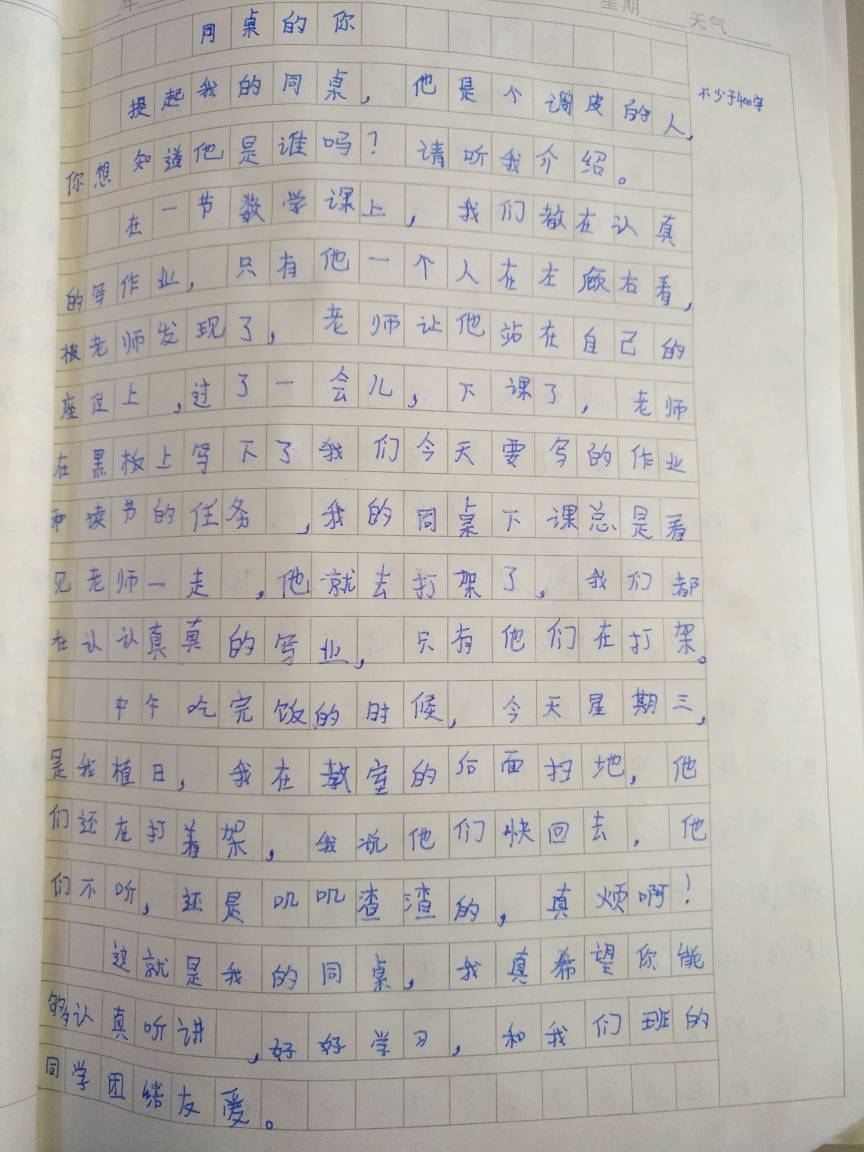 年 星期 天气
同桌的你
提起我的同桌，他是个调皮的人，
不少于400字
你想知道他是谁吗？请听我介绍。
在一节数学课上，我们都在认真
的写作业，只有他一个人在左顾右看，
被老师发现了，老师让他站在自己的
座位上，过了一会儿，下课了，老师
在黑板上写下了我们今天要写的作业
和读书的任务，我的同桌下课总是看
见老师一走，他就去打架了，我们都
在认认真真的写业，只有他们在打架。
中午吃完饭的时候，今天星期三，
是我植日，我在教室的后面扫地，他
们还在打着架，我说他们快回去，他
们不听，还是叽叽渣渣的，真烦啊！
这就是我的同桌，我真希望你能
够认真听讲，好好学习，和我们班的
同学团结友爱。